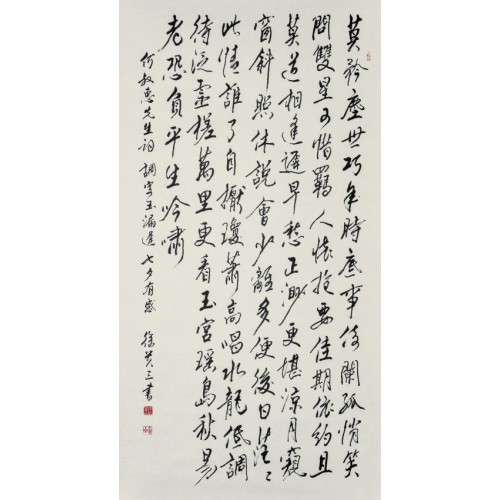 莫矜塵世巧年時底事倚闌孤悄笑
問雙星可惜羈人懷抱要佳期依約且
莫道相逢遲早愁正渺更堪涼月窺
窗斜照休說會少離多便後日茫〻
此情誰了自擫瓊簫高唱水龍低調
待泛靈槎萬里更看玉宮瑤島秋易
老恐負平生吟嘯
何叔惠先生詞 調寄玉漏遲 七夕有感 徐 三書